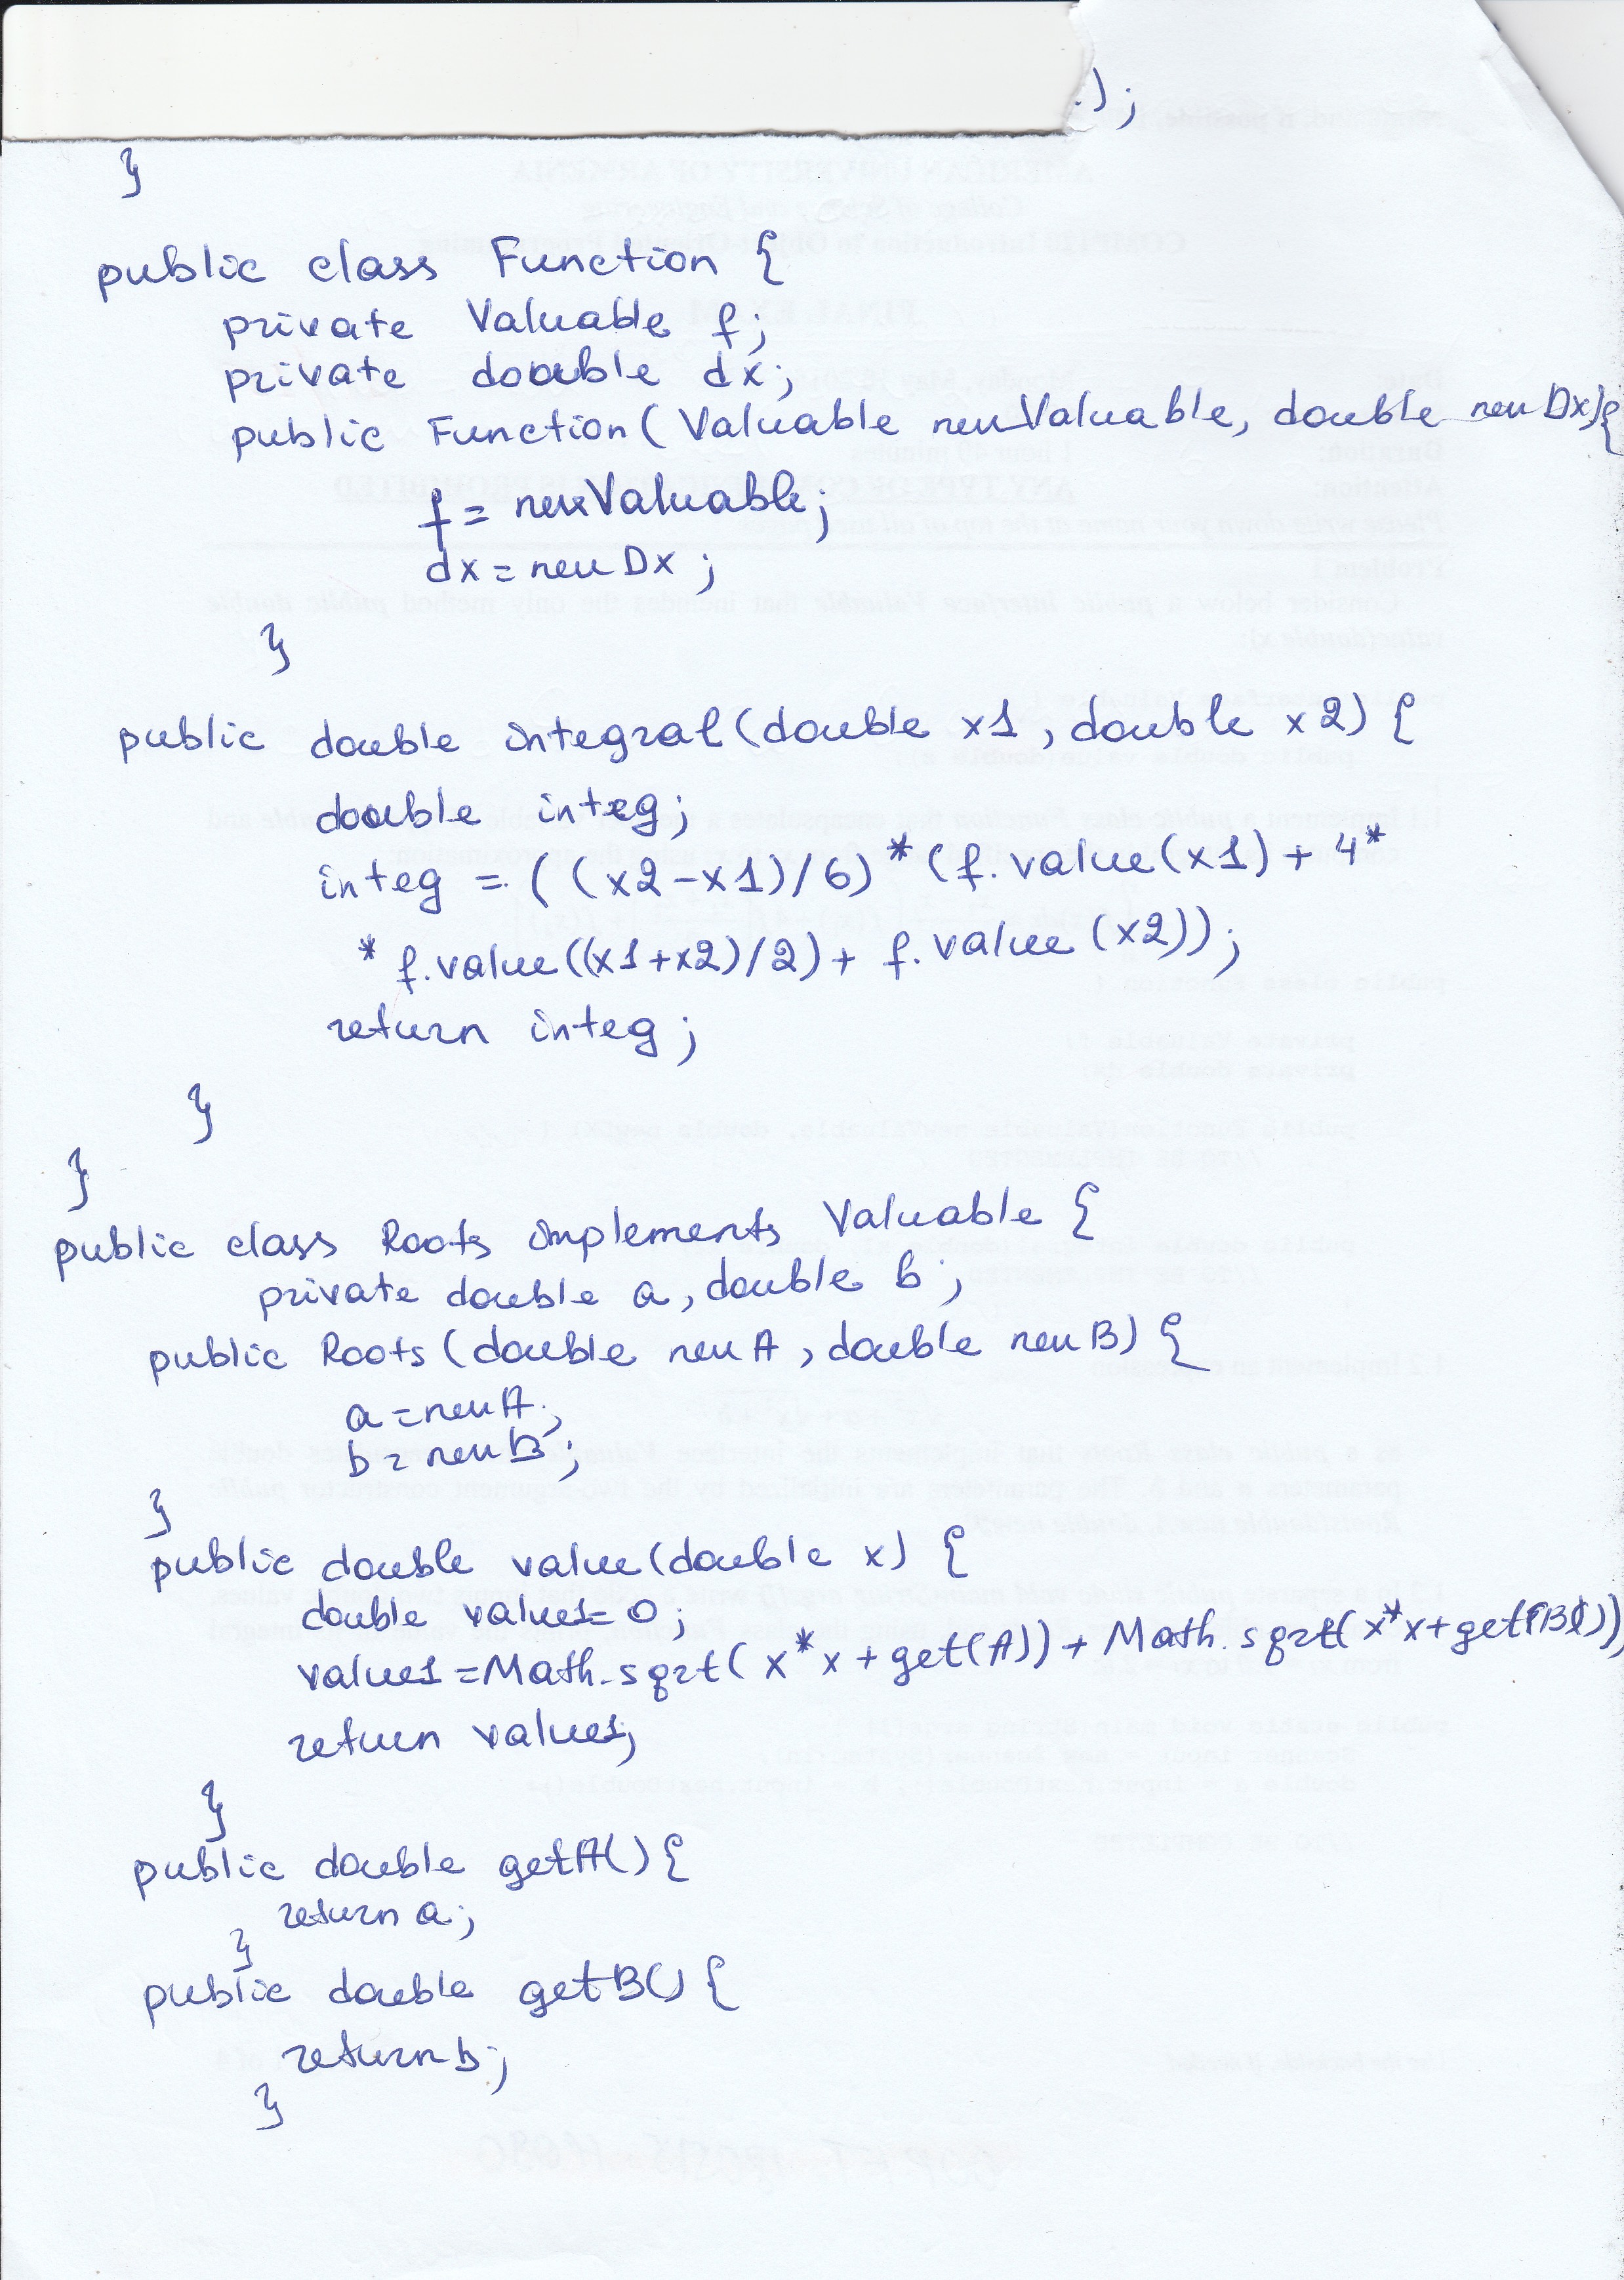 .);
}
public class Function {
private Valuable f;
private double dx;
public Function(Valuable newValuable, double newDx){
f = newValuable;
dx = newDx;
}
public double integral(double x1, double x2) {
double integ;
integ = ((x2-x1)/6)*(f.value(x1) + 4*
* f.value((x1+x2)/2) + f.value(x2));
return integ;
}
}
public class Roots implements Valuable {
private double a, double b;
public Roots(double newA, double newB) {
a = newA;
b = newB;
}
public double value(double x) {
double value1=0;
value1 = Math.sqrt(x*x + get(A)) + Math.sqrt(x*x+get(B))
return value1;
}
public double getA(){
return a;
}
public double getB(){
return b;
}